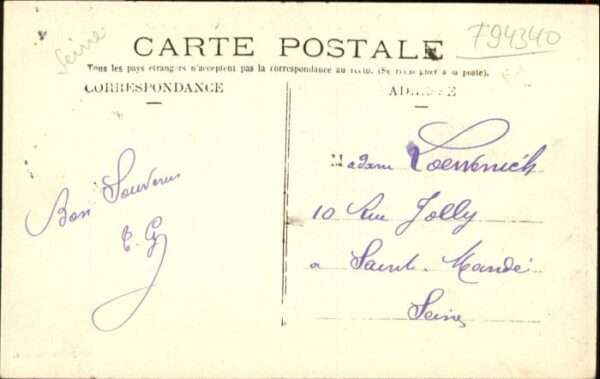 Seine
794340
CARTE POSTALE
Tous les pays étrangers n'acceptent pas la correspondance au recto. (Se renseigner à la poste).
CORRESPONDANCE
ADRESSE
Bon Souvenir
Madame
10 Rue Jolly
a Saint-Mandé
Seine